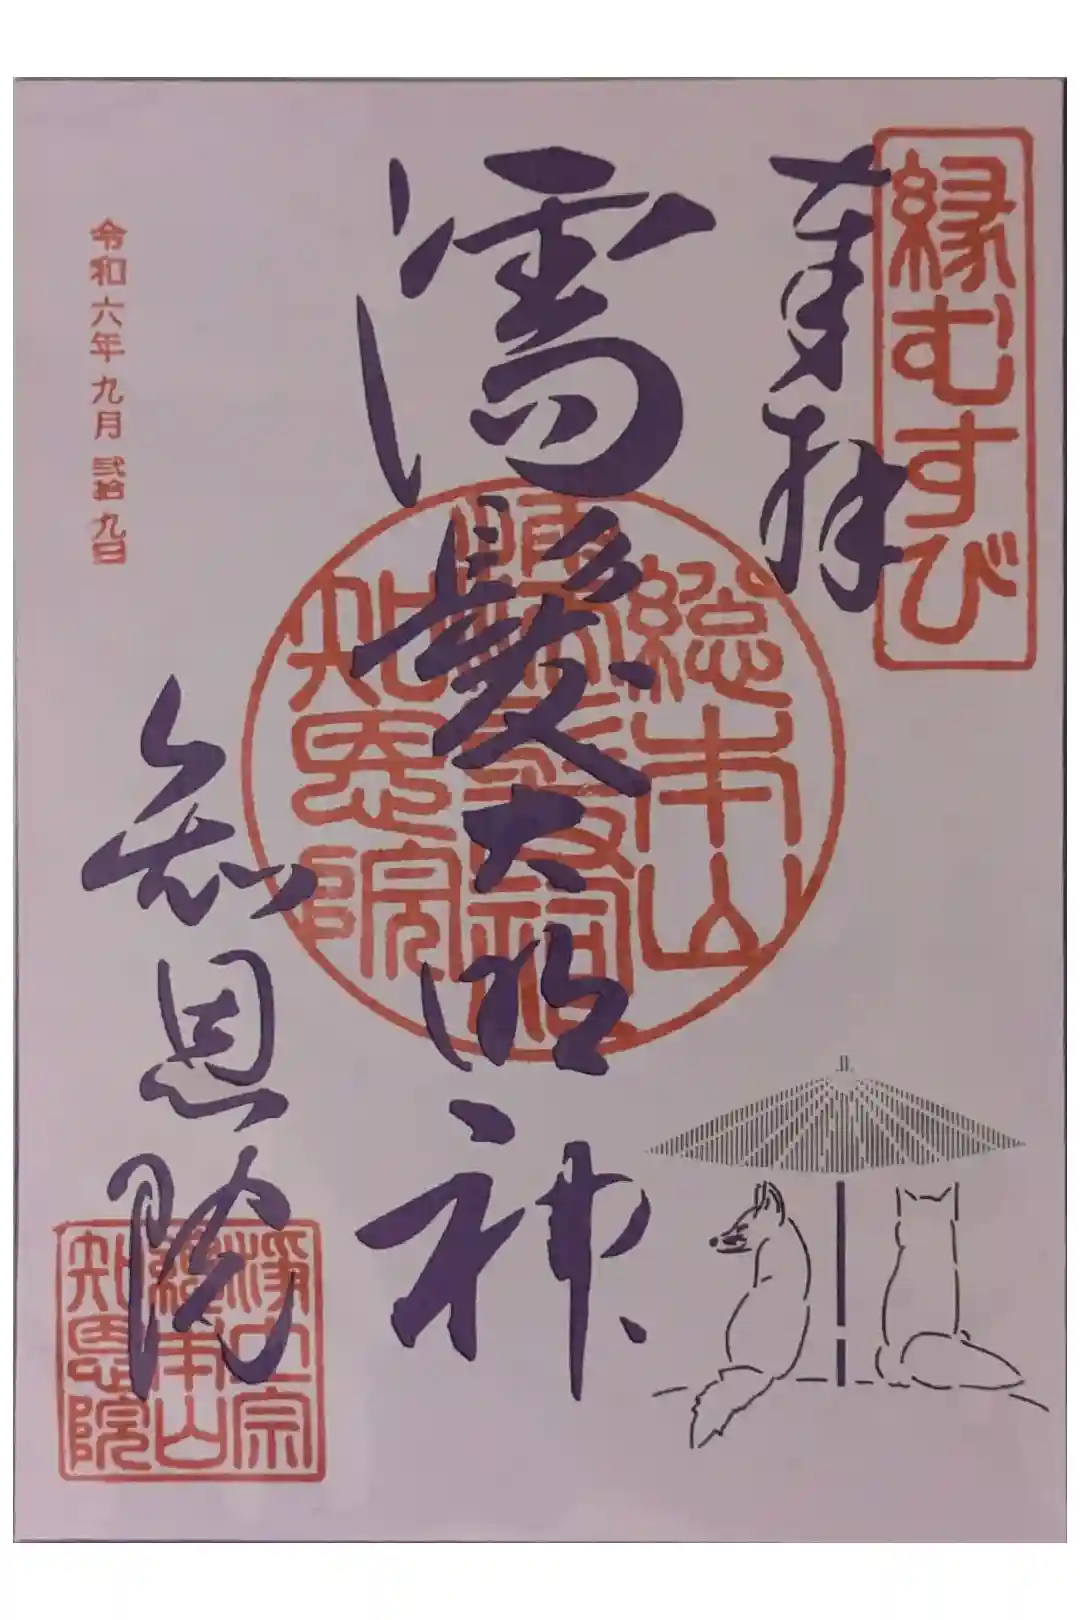 縁むすび
奉拝
濡髪大明神
総本山
濡髪祠
知恩院
知恩院
浄土宗
総本山
知恩院
令和六年九月弐拾九日